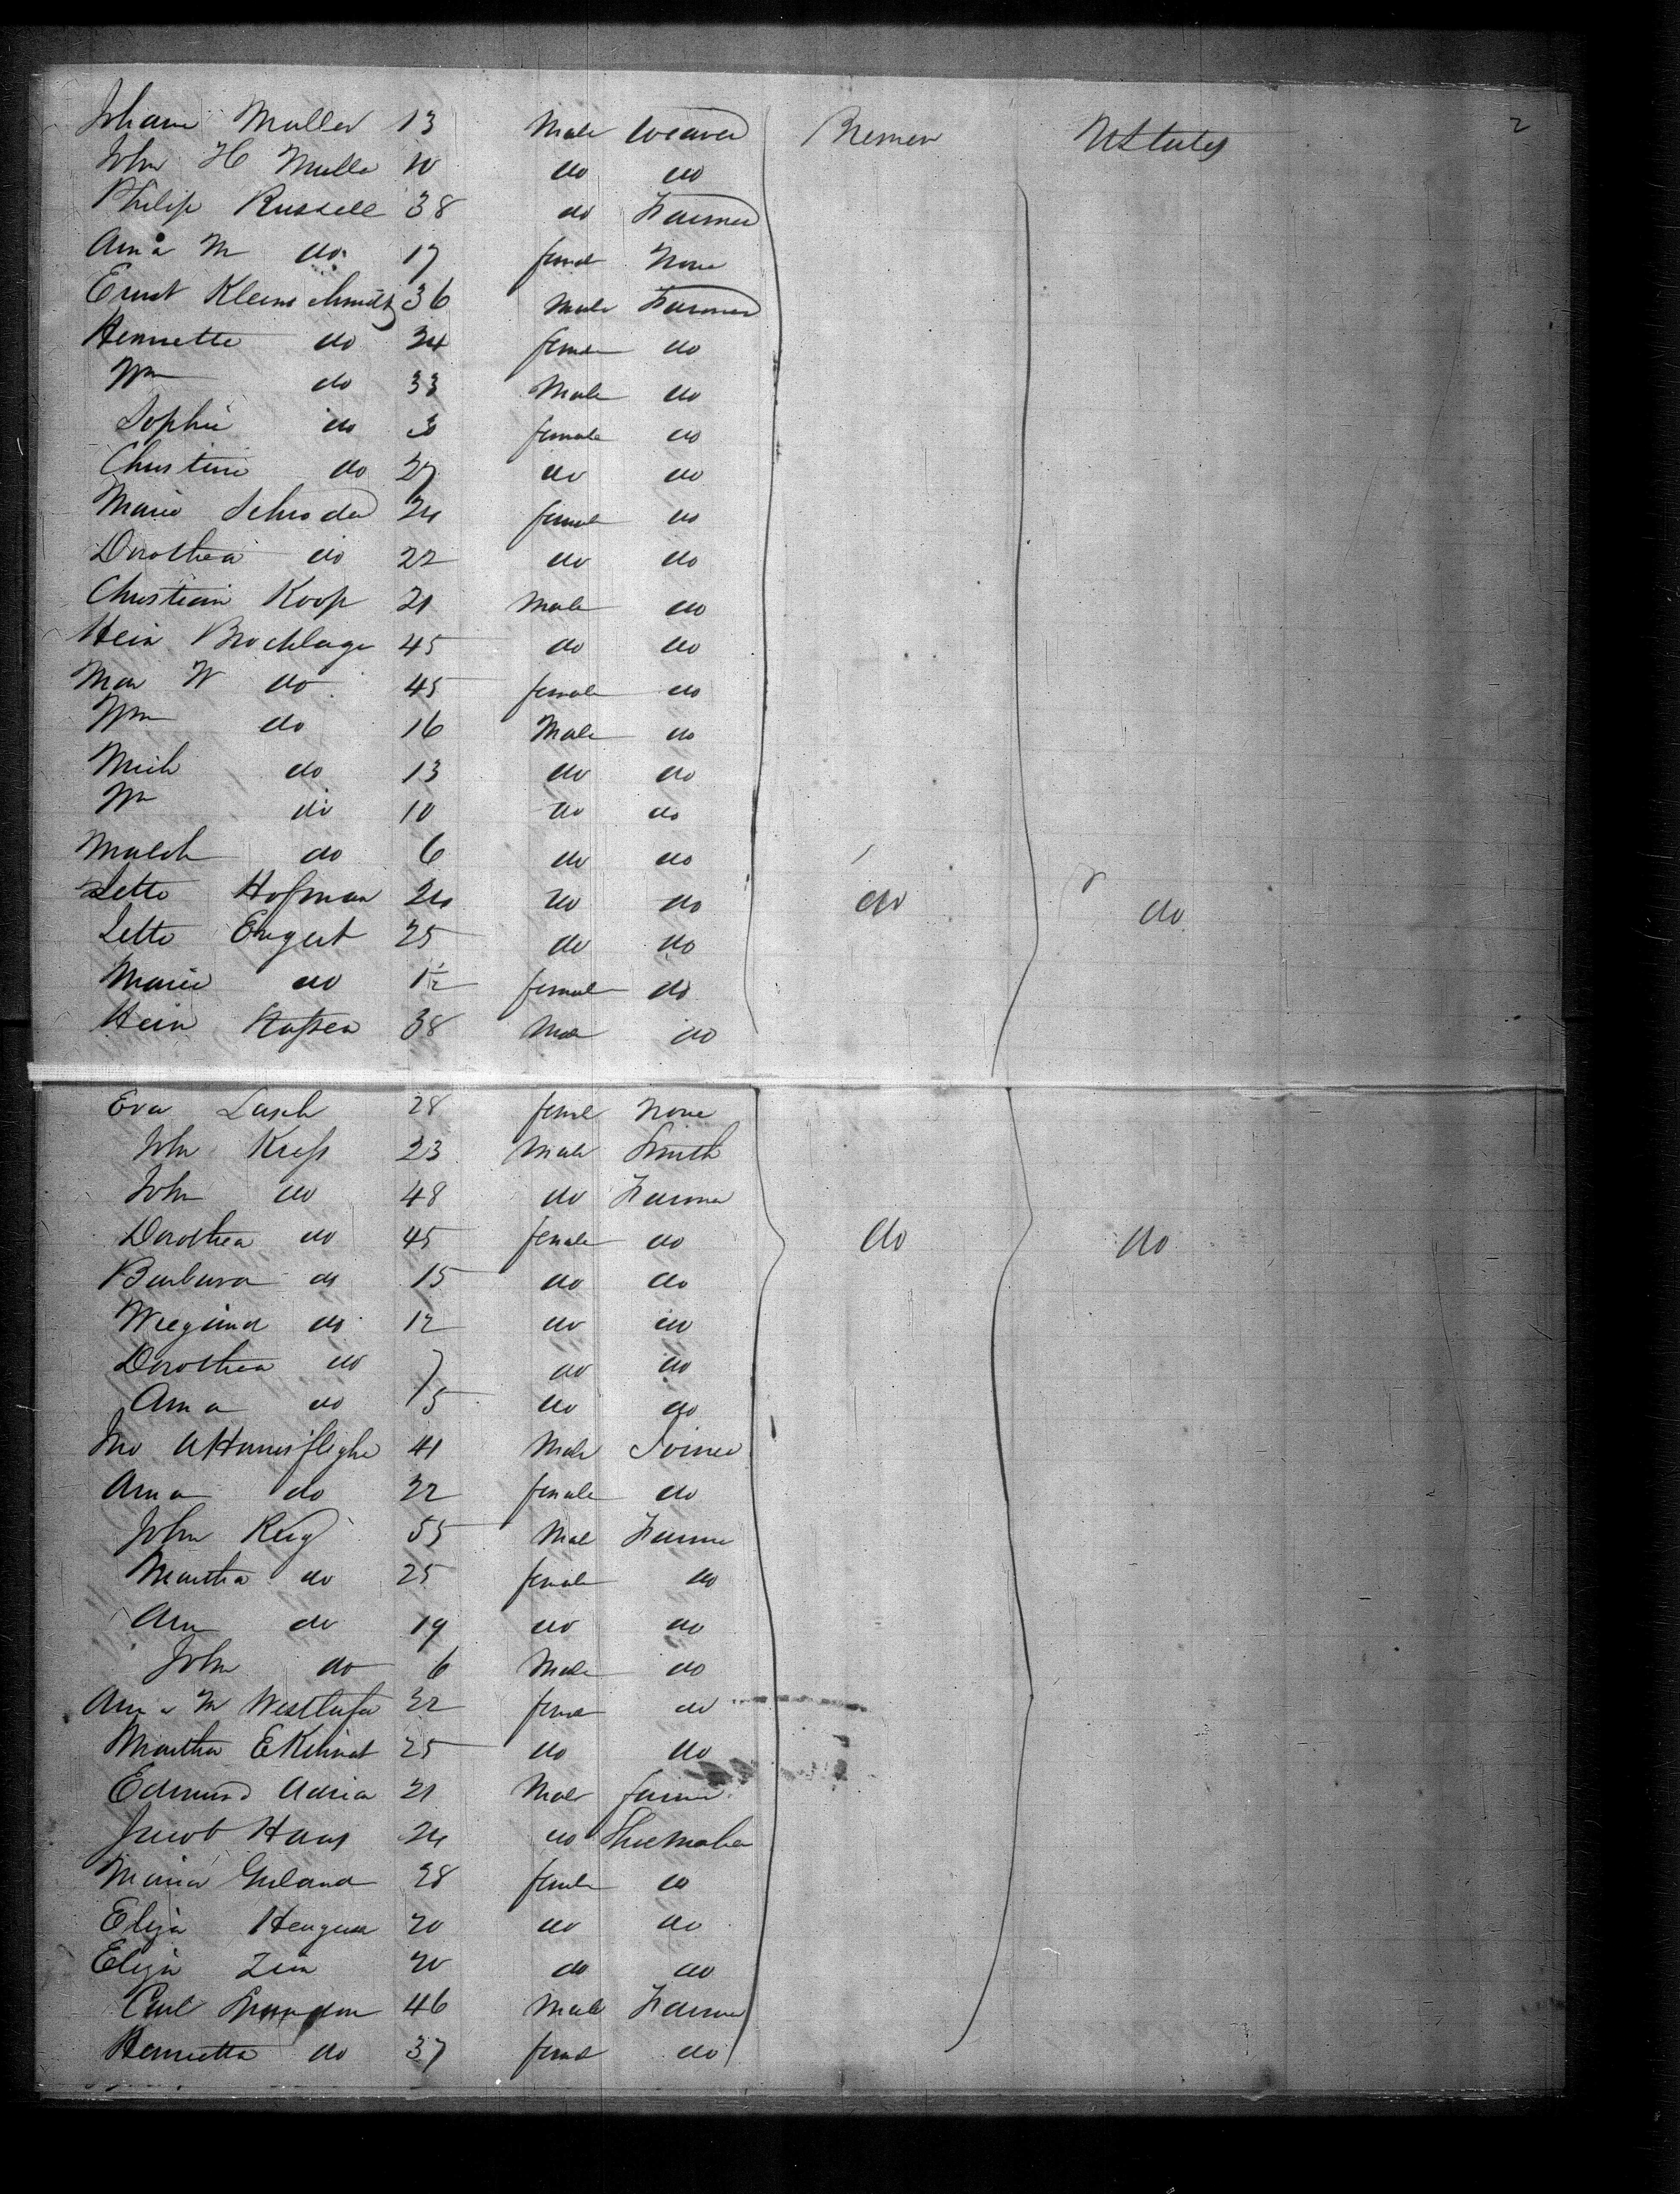 Johann Muller 13 Male Weaver Bremen UStates 2
John H Mulle 10 do do
Philip Russell 38 do Farmer
Anna M do 17 femal None
Ernst Kleinschmidt 36 Male Farmer
Henriette do 34 femal do
Wm do 33 Male do
Sophie do 3 female do
Christine do 27 do do
Marie Schroder 24 femal do
Dorothea do 22 do do
Christian Koop 21 Male do
Hein Brocklage 45 do do
Mar W do 45 female do
Wm do 16 Male do
Mich do 13 do do
Wm do 10 do do
do 6 do do
Hofman 24 do do do do
Engert 25 do do
Marie do 1½ female do
Hein 38 Male do
Eva Lasch 28 femal None
John Kress 23 Male Smith
John do 48 do Farmer
Dorothea do 45 female do do do
Barbara do 15 do do
do 12 do do
Dorothea do 7 do do
Anna do 5 do do
Jno 41 Male Joiner
Anna do 22 female do
John 55 Male Farmer
Martha do 25 female do
Ann do 19 do do
John do 6 Male do
Anna M 22 femal do
Martha 25 do do
Edmund Adria 21 Male farmer
Jacob Haas 24 do Shoemaker
Maria 28 female do
Eliza 20 do do
Eliza 20 do do
Carl 46 Male Farmer
Henrietta do 37 femal do